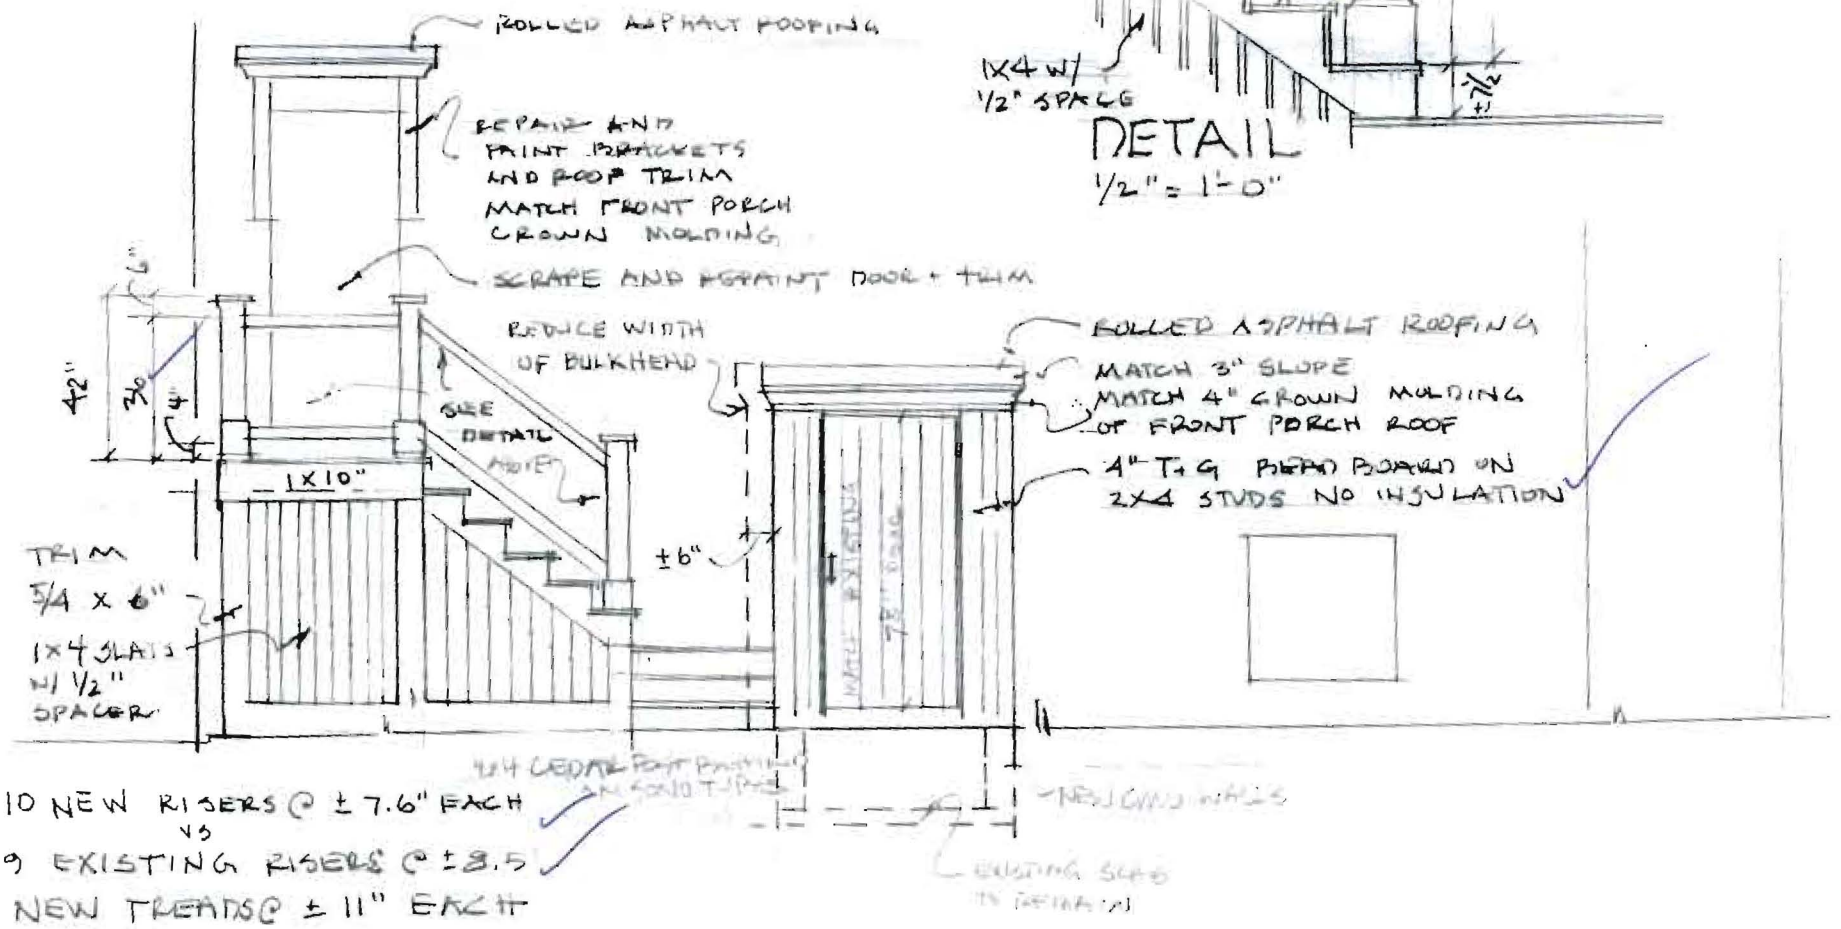 ROLLED ASPHALT ROOFING
1X4 W/
1/2" SPACE
DETAIL
1/2" = 1'-0"
± 7 1/2
REPAIR AND
PAINT BRACKETS
AND ROOF TRIM
MATCH FRONT PORCH
CROWN MOLDING
SCRAPE AND REPAINT DOOR + TRIM
6"
42"
36
4"
REDUCE WIDTH
OF BULKHEAD
SEE
DETAIL
ABOVE
ROLLED ASPHALT ROOFING
MATCH 3" SLOPE
MATCH 4" CROWN MOLDING
OF FRONT PORCH ROOF
4" T+G BEAD BOARD ON
2X4 STUDS NO INSULATION
1X10"
MATCH EXISTING
78" DOOR
±6"
TRIM
5/4 X 6"
1X4 SLATS
W/ 1/2"
SPACER
4X4 CEDAR POST
ON SONOTUBES
NEW CMU WALLS
EXISTING SLAB
TO REMAIN
10 NEW RISERS @ ± 7.6" EACH
VS
9 EXISTING RISERS @ ± 8.5
NEW TREADS @ ± 11" EACH